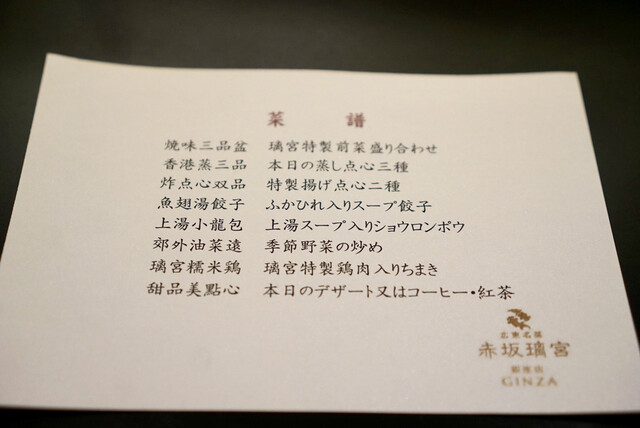 菜 譜
焼味三品盆 璃宮特製前菜盛り合わせ
香港蒸三品 本日の蒸し点心三種
炸点心双品 特製揚げ点心二種
魚翅湯餃子 ふかひれ入りスープ餃子
上湯小龍包 上湯スープ入りショウロンポウ
郊外油菜遠 季節野菜の炒め
璃宮糯米鶏 璃宮特製鶏肉入りちまき
甜品美點心 本日のデザート又はコーヒー・紅茶
広東名菜
赤坂璃宮
銀座店
GINZA